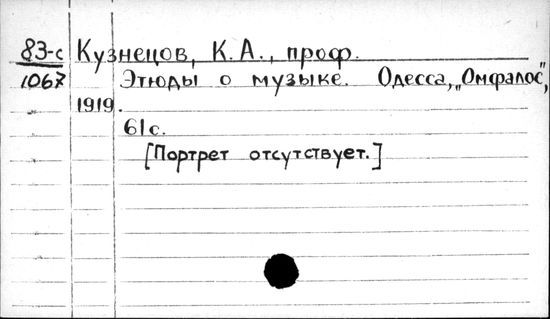 83-с Кузнецов, К.А., проф.
1067 Этюды о музыке. Одесса, „Омфалос",
1919.
61 с.
[Портрет отсутствует.]